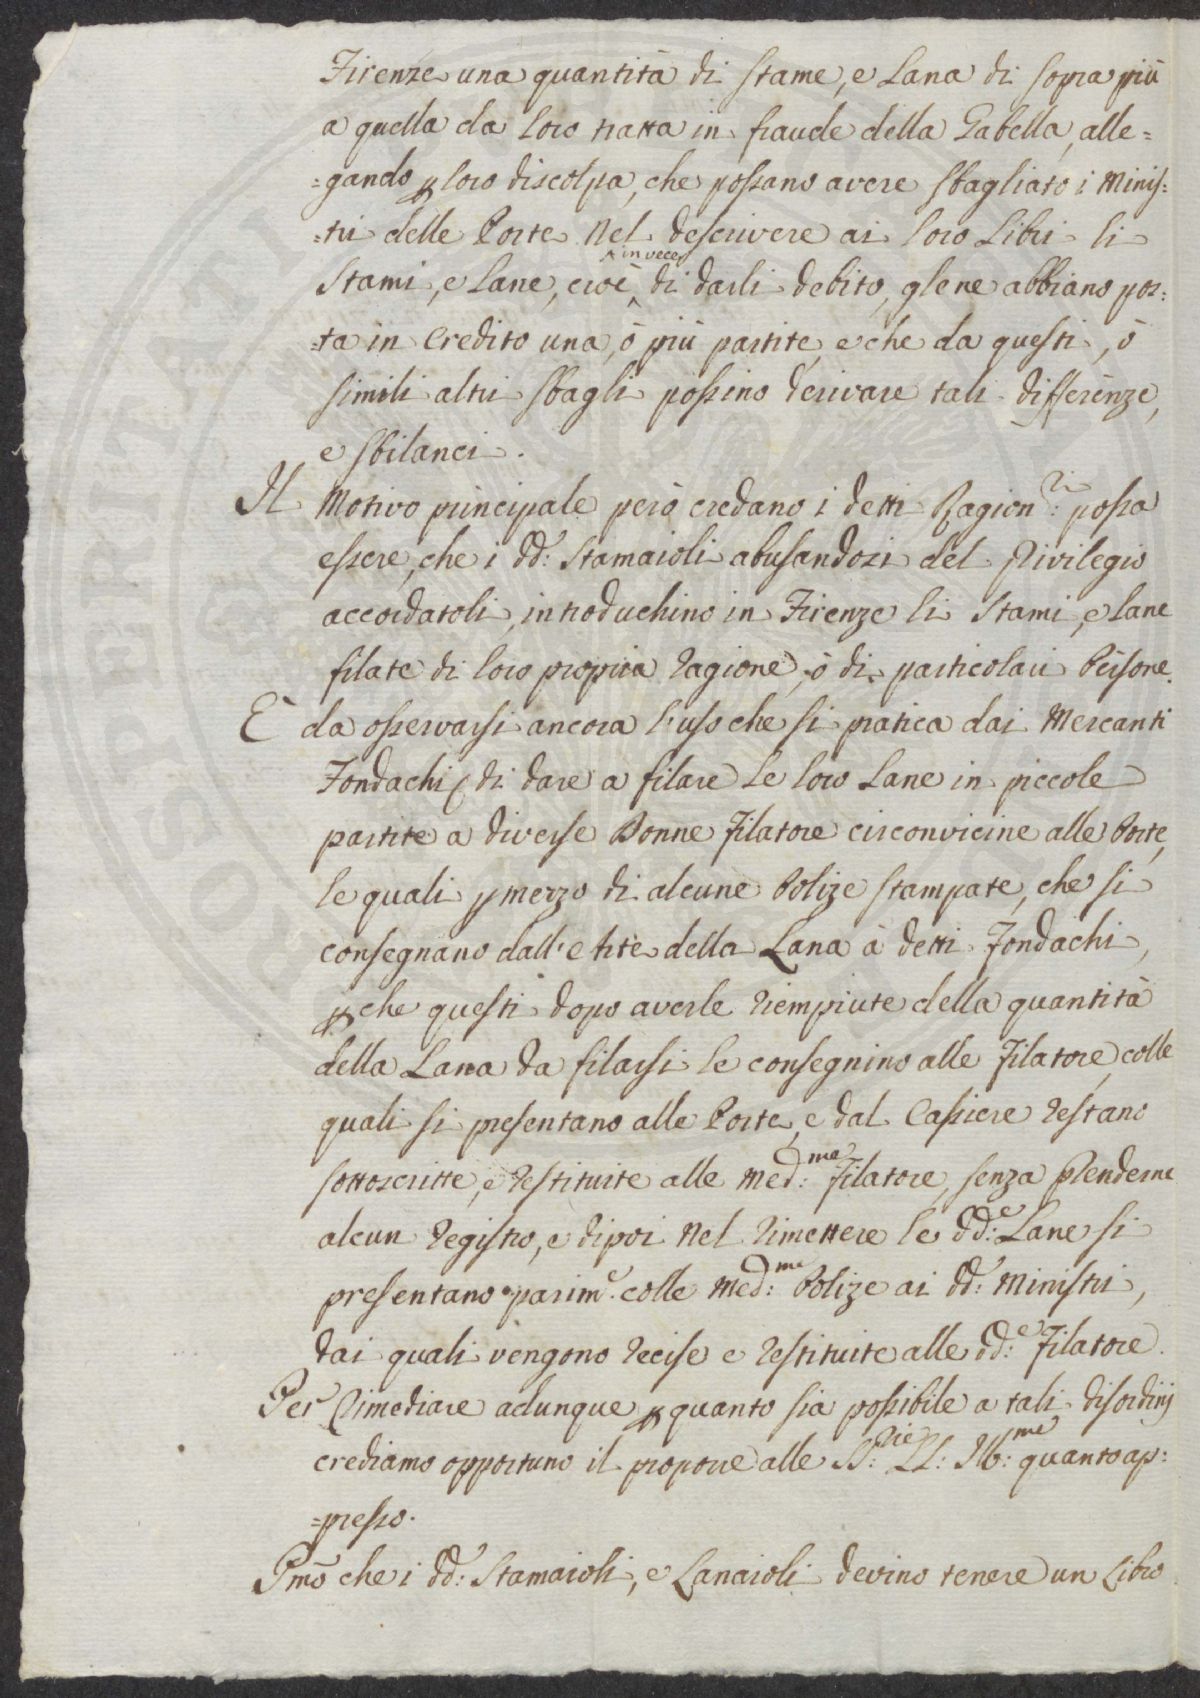 Firenze una quantità di stame, e Lana di sopra più
a quella da loro tratta in fraude della Gabella, alle=
=gando p loro discolpa, che possano avere sbagliato i Minis=
=tri delle Porte nel descrivere ai loro Libri li
Stami, e Lane, cioè invece di darli debito, glene abbiano pos=
=ta in Credito una, ò più partite, e che da questi, ò
simili altri sbagli possino derivare tali differenze,
e sbilanci.
Il Motivo principale però credano i detti Ragion:ri possa
essere, che i dd: Stamaioli abusandosi del Privilegio
accordatoli, introduchino in Firenze li Stami, e Lane
filate di loro propria ragione, ò di particolari Persone.
È da osservarsi ancora l'uso che si pratica dai Mercanti
Fondachi di dare a filare le loro Lane in piccole
partite a diverse Donne filatore circonvicine alle Porte,
le quali p mezzo di alcune Polize stampate, che si
consegnano dall'etite della Lana à detti Fondachi,
p che questi dopo averle riempiute della quantità
della Lana da filarsi le consegnino alle filatore, colle
quali si presentano alle Porte, e dal Cassiere restano
sottoscritte, e restituite alle med:me filatore, senza prenderne
alcun registro, e dipoi nel rimettere le dd:e Lane si
presentano parim.e colle med:me Polize ai dd: Ministri,
dai quali vengono recise e restituite alle dd:e filatore.
Per rimediare adunque p quanto sia possibile a tali disordinj
crediamo opportuno il proporre alle SS:rie LL: Ill:me quanto ap:
=presso.
Pmo che i dd: Stamaioli, e Lanaioli devino tenere un Libro